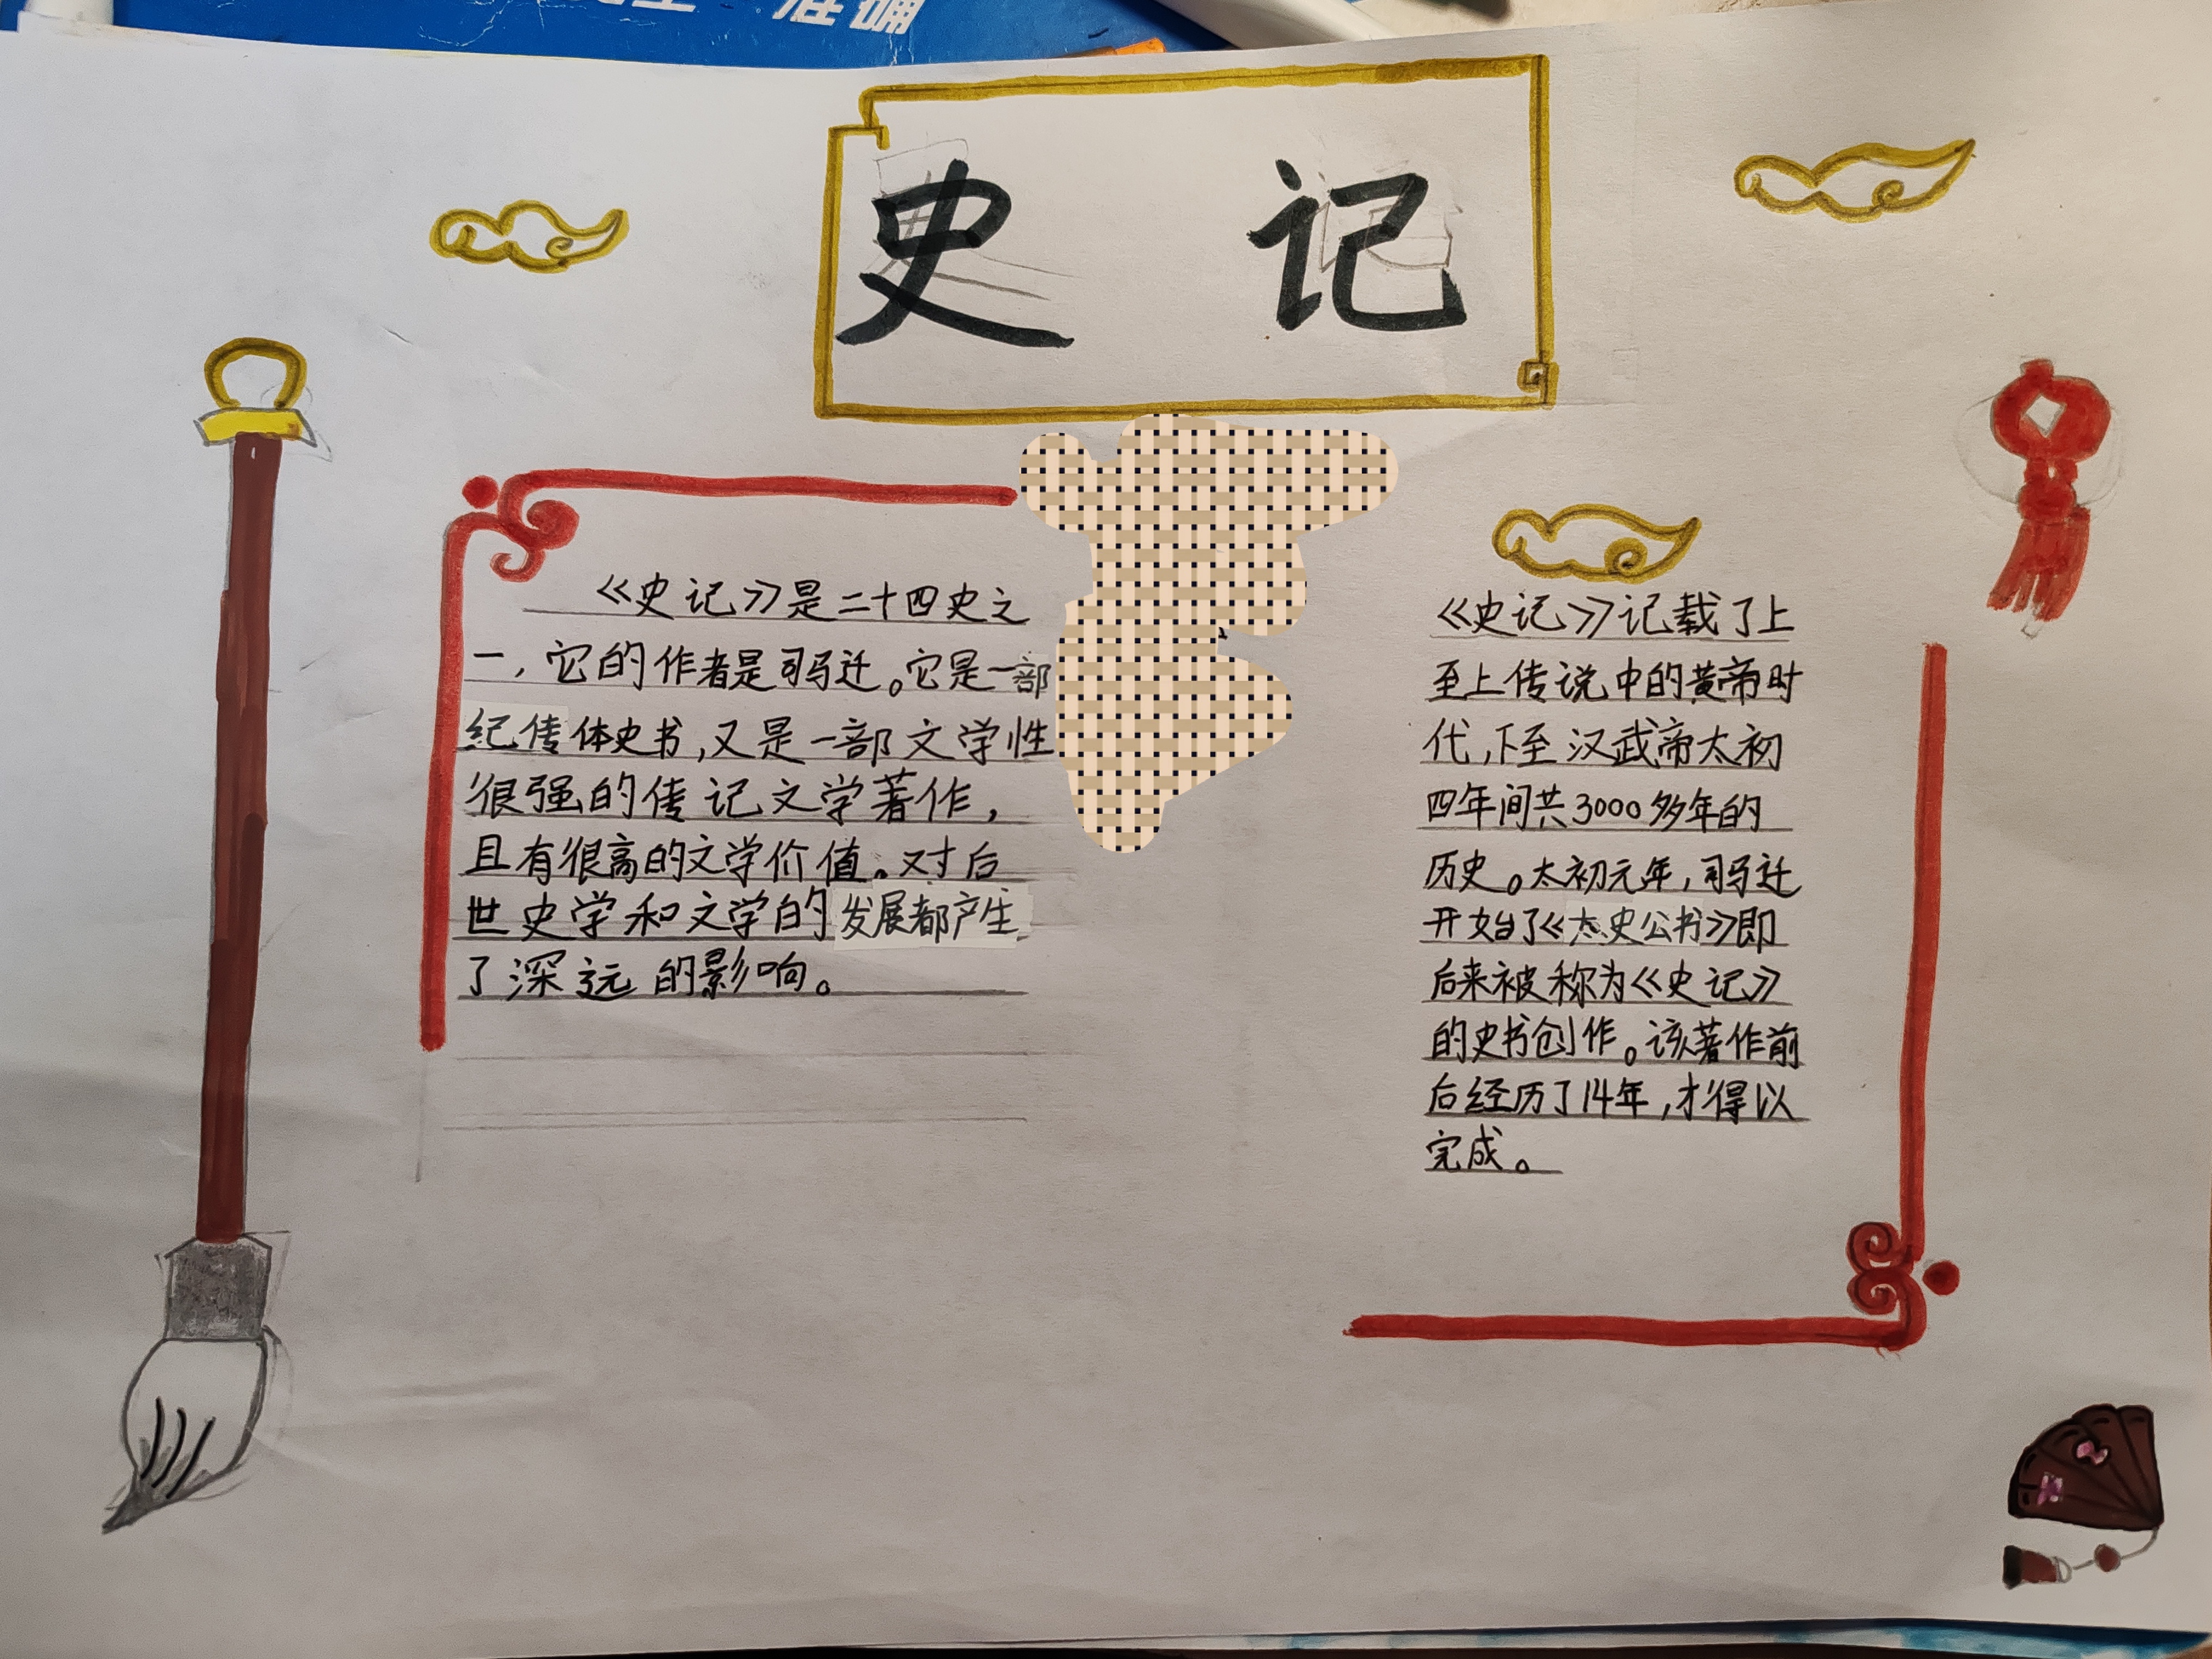 准确
史 记
《史记》是二十四史之
一,它的作者是司马迁。它是一部
纪传体史书,又是一部文学性
很强的传记文学著作,
且有很高的文学价值。对后
世史学和文学的发展都产生
了深远的影响。
《史记》记载了上
至上传说中的黄帝时
代,下至汉武帝太初
四年间共3000多年的
历史。太初元年,司马迁
开始了《太史公书》即
后来被称为《史记》
的史书创作。该著作前
后经历了14年,才得以
完成。